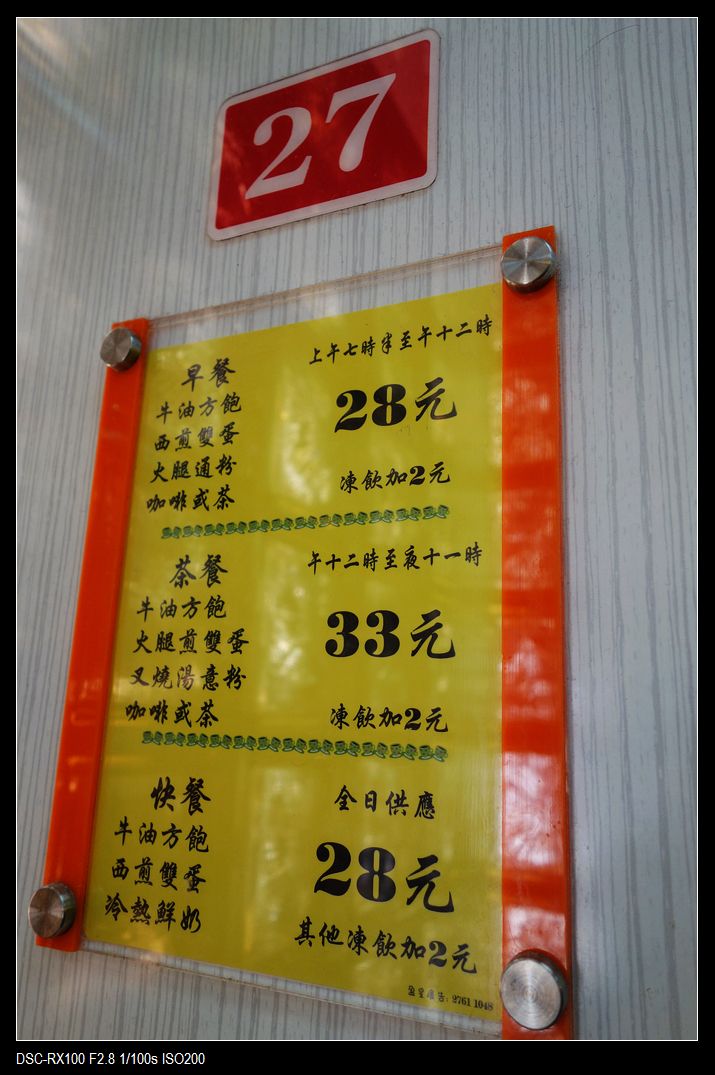 27
早餐
牛油方飽
西煎雙蛋
火腿通粉
咖啡或茶
上午七時半至午十二時
28元
凍飲加2元
茶餐
牛油方飽
火腿煎雙蛋
叉燒湯意粉
咖啡或茶
午十二時至夜十一時
33元
凍飲加2元
快餐
牛油方飽
西煎雙蛋
冷熱鮮奶
全日供應
28元
其他凍飲加2元
盈呈廣告: 2761 1048
DSC-RX100 F2.8 1/100s ISO200